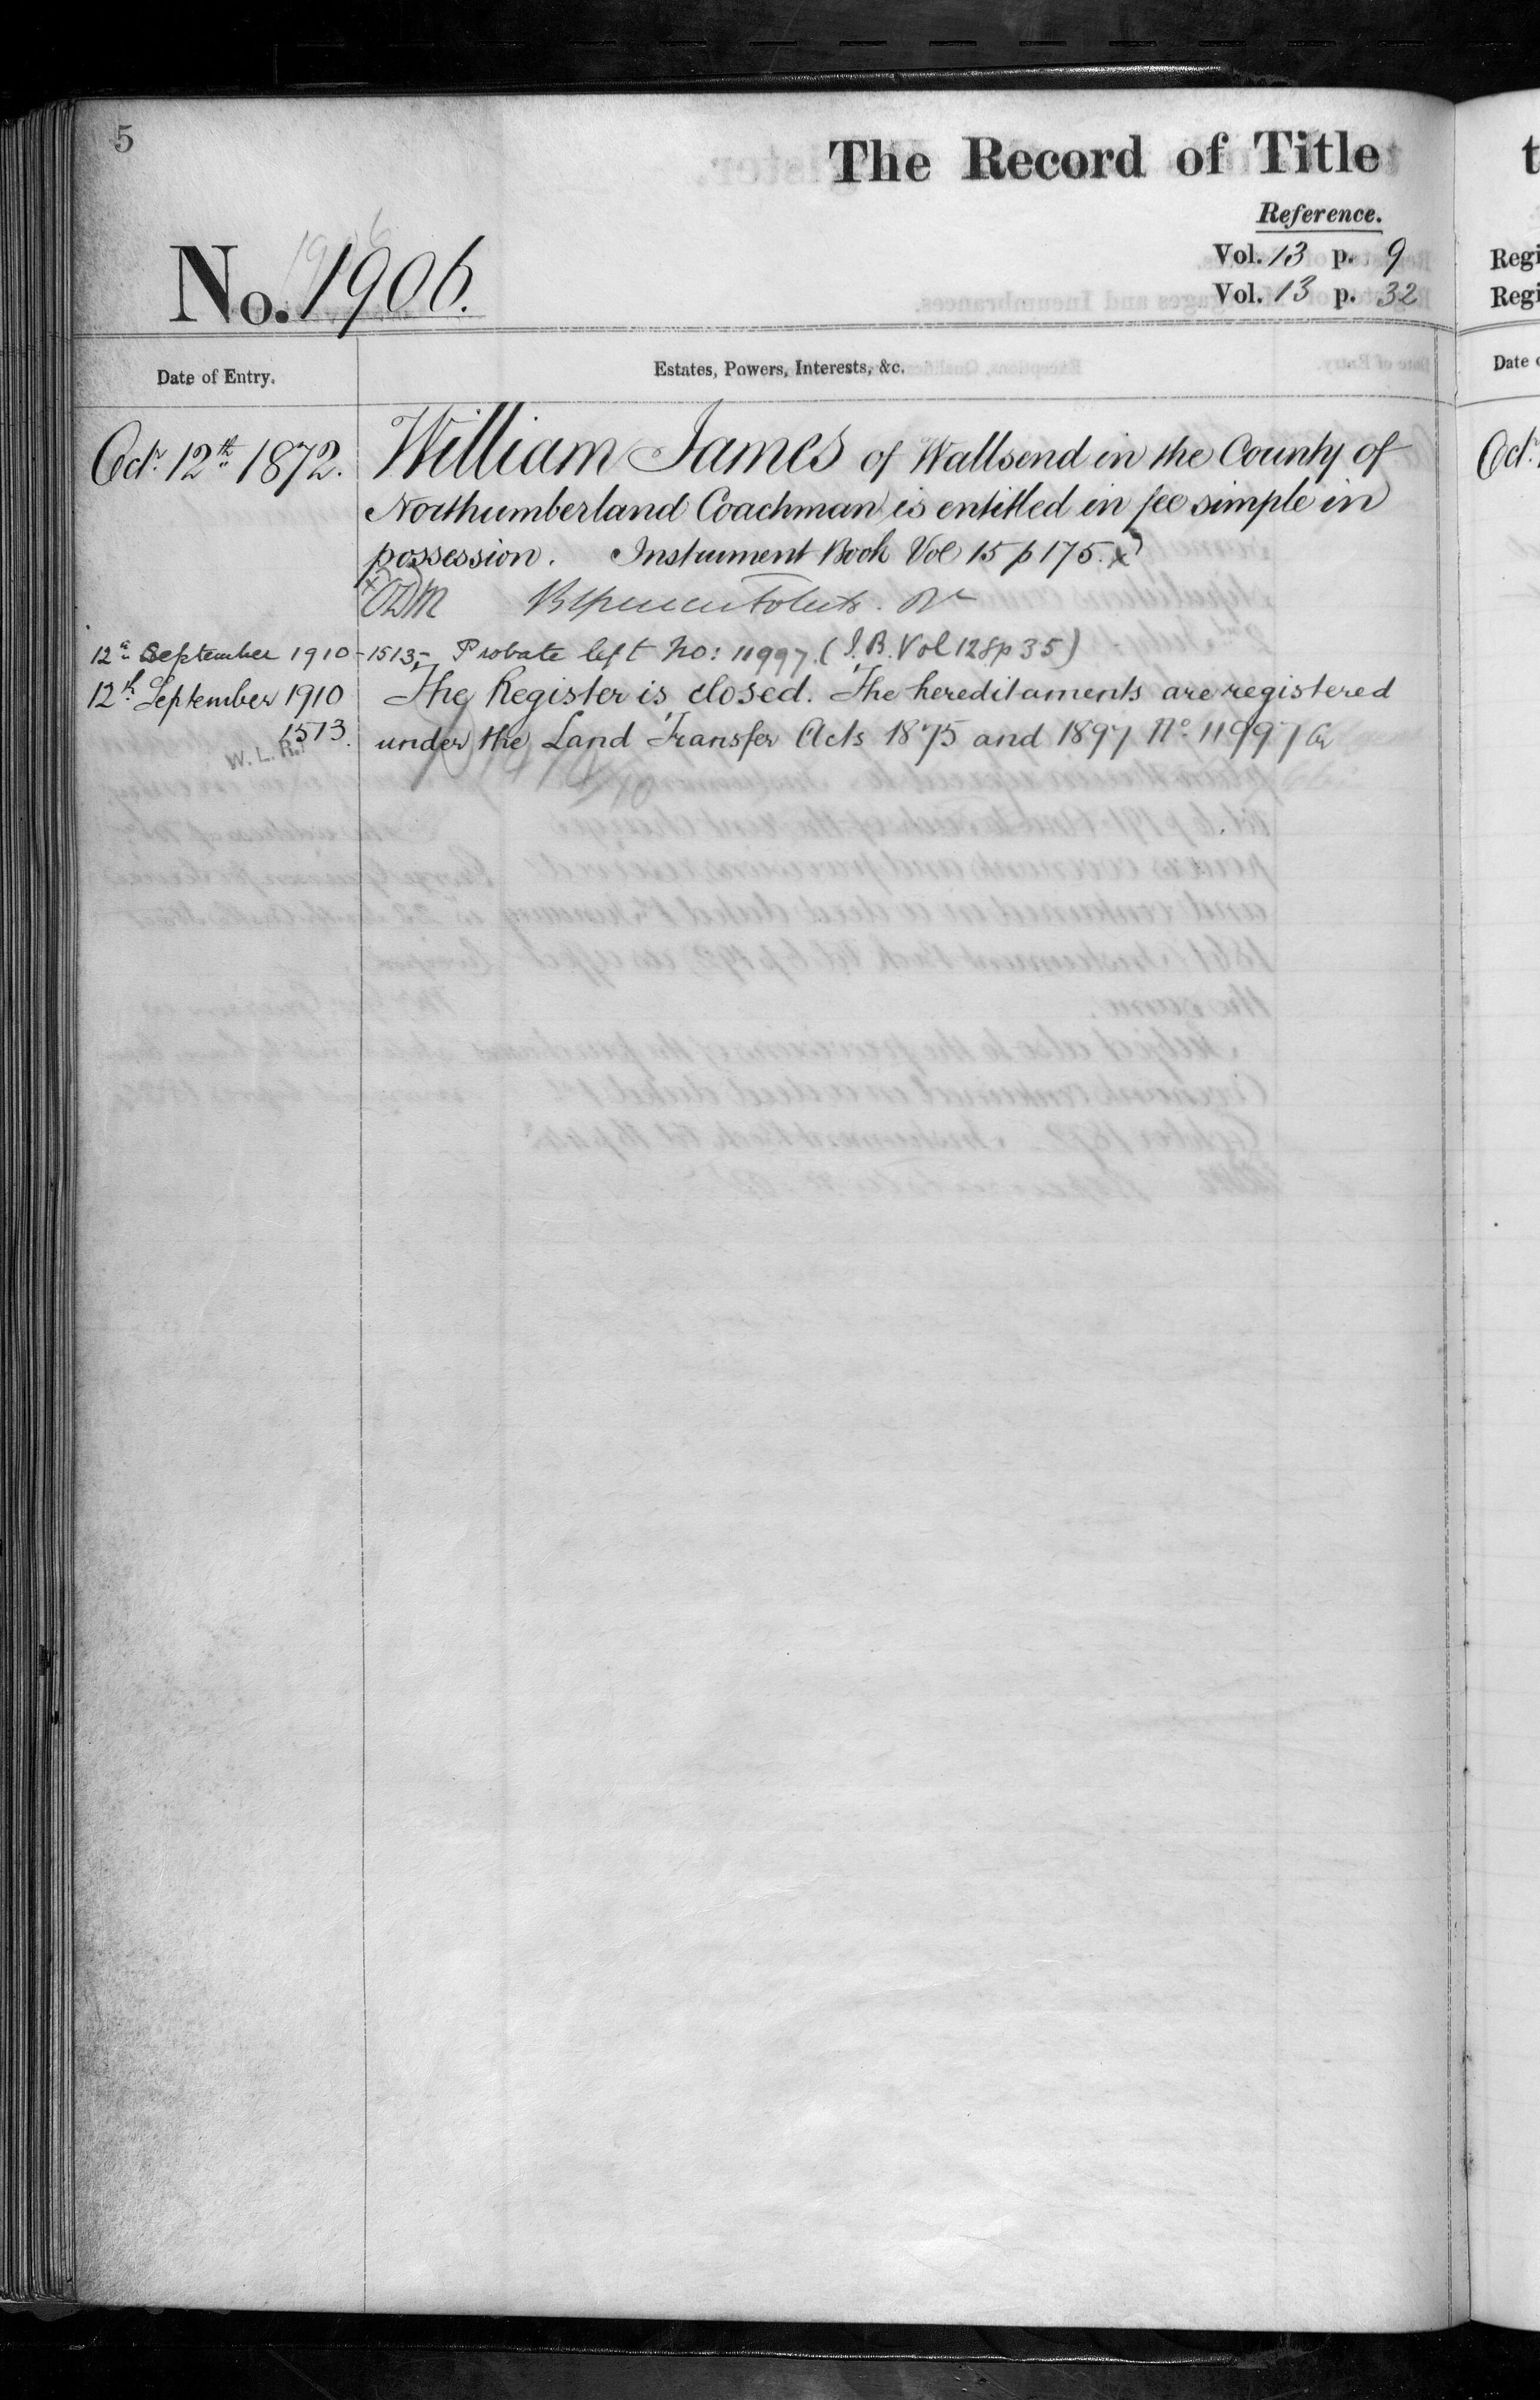 5
The Record of Title
Reference.
No. 1906.
Vol. 13 p. 9
Vol. 13 p. 32
Date of Entry.
Estates, Powers, Interests, &c.
Octr. 12th 1872.
William James of Wallsend in the County of
Northumberland Coachman is entitled in fee simple in
possession. Instrument Book Vol 15 p 175. x
12th September 1910 - 1513 - Probate left No: 11997. (I.B. Vol 128 p 35)
12th September 1910
The Register is closed. The hereditaments are registered
1513.
under the Land Transfer Acts 1875 and 1897 No. 11997
W. L. R.
t
Regi
Regi
Date
Oct.